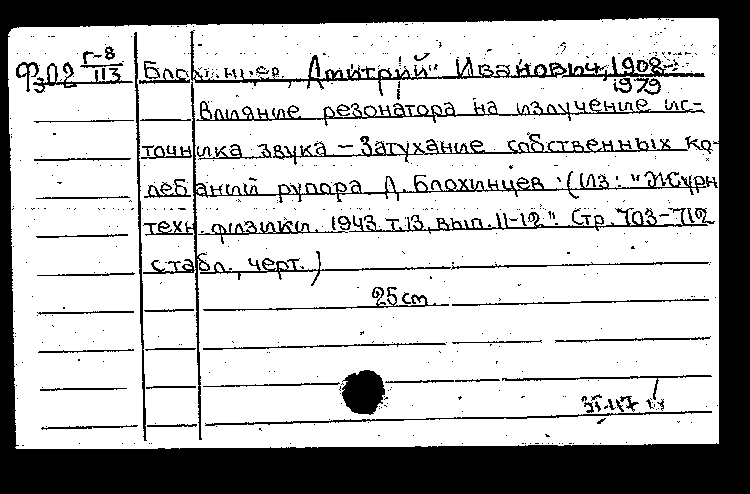 Фз02 Г-8/113 Блохинцев, Дмитрий Иванович, 1908-
1979
Влияние резонатора на излучение ис-
точника звука - Затухание собственных ко-
лебаний рупора Д. Блохинцев. (Из: "Журн
техн. физики. 1943. т.13, вып. 11-12". Стр. 703-712
с табл., черт.)
25 cm.